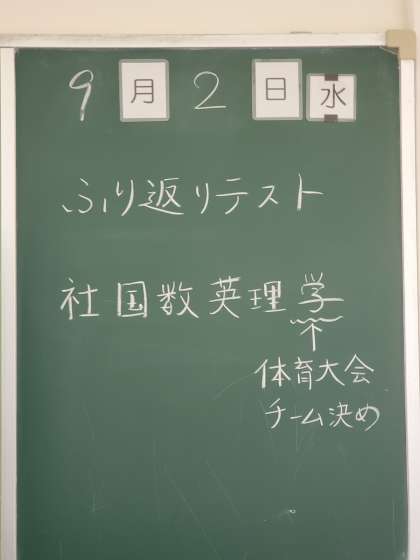 9月2日水
ふり返りテスト
社国数英理学
↑
体育大会
チーム決め